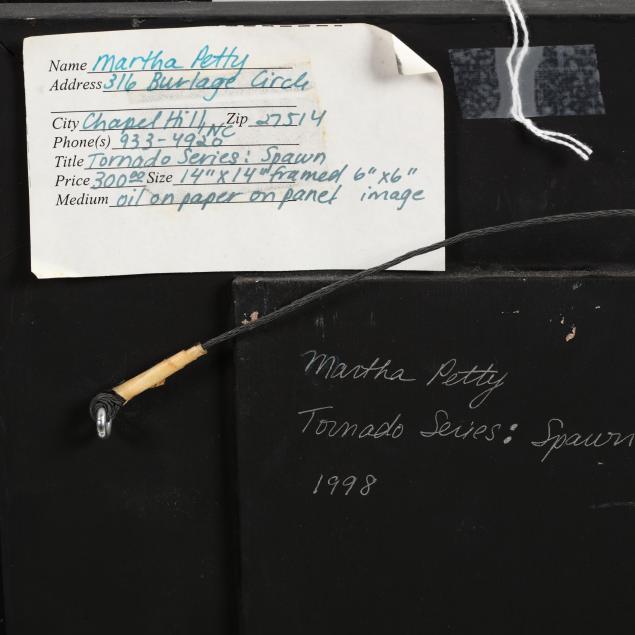 Name Martha Petty
Address 316 Burlage Circle
City Chapel Hill, NC Zip 27514
Phone(s) 933-4920
Title Tornado Series: Spawn
Price 300.00 Size 14" x 14" framed 6" x 6" image
Medium oil on paper on panel
Martha Petty
Tornado Series: Spawn
1998